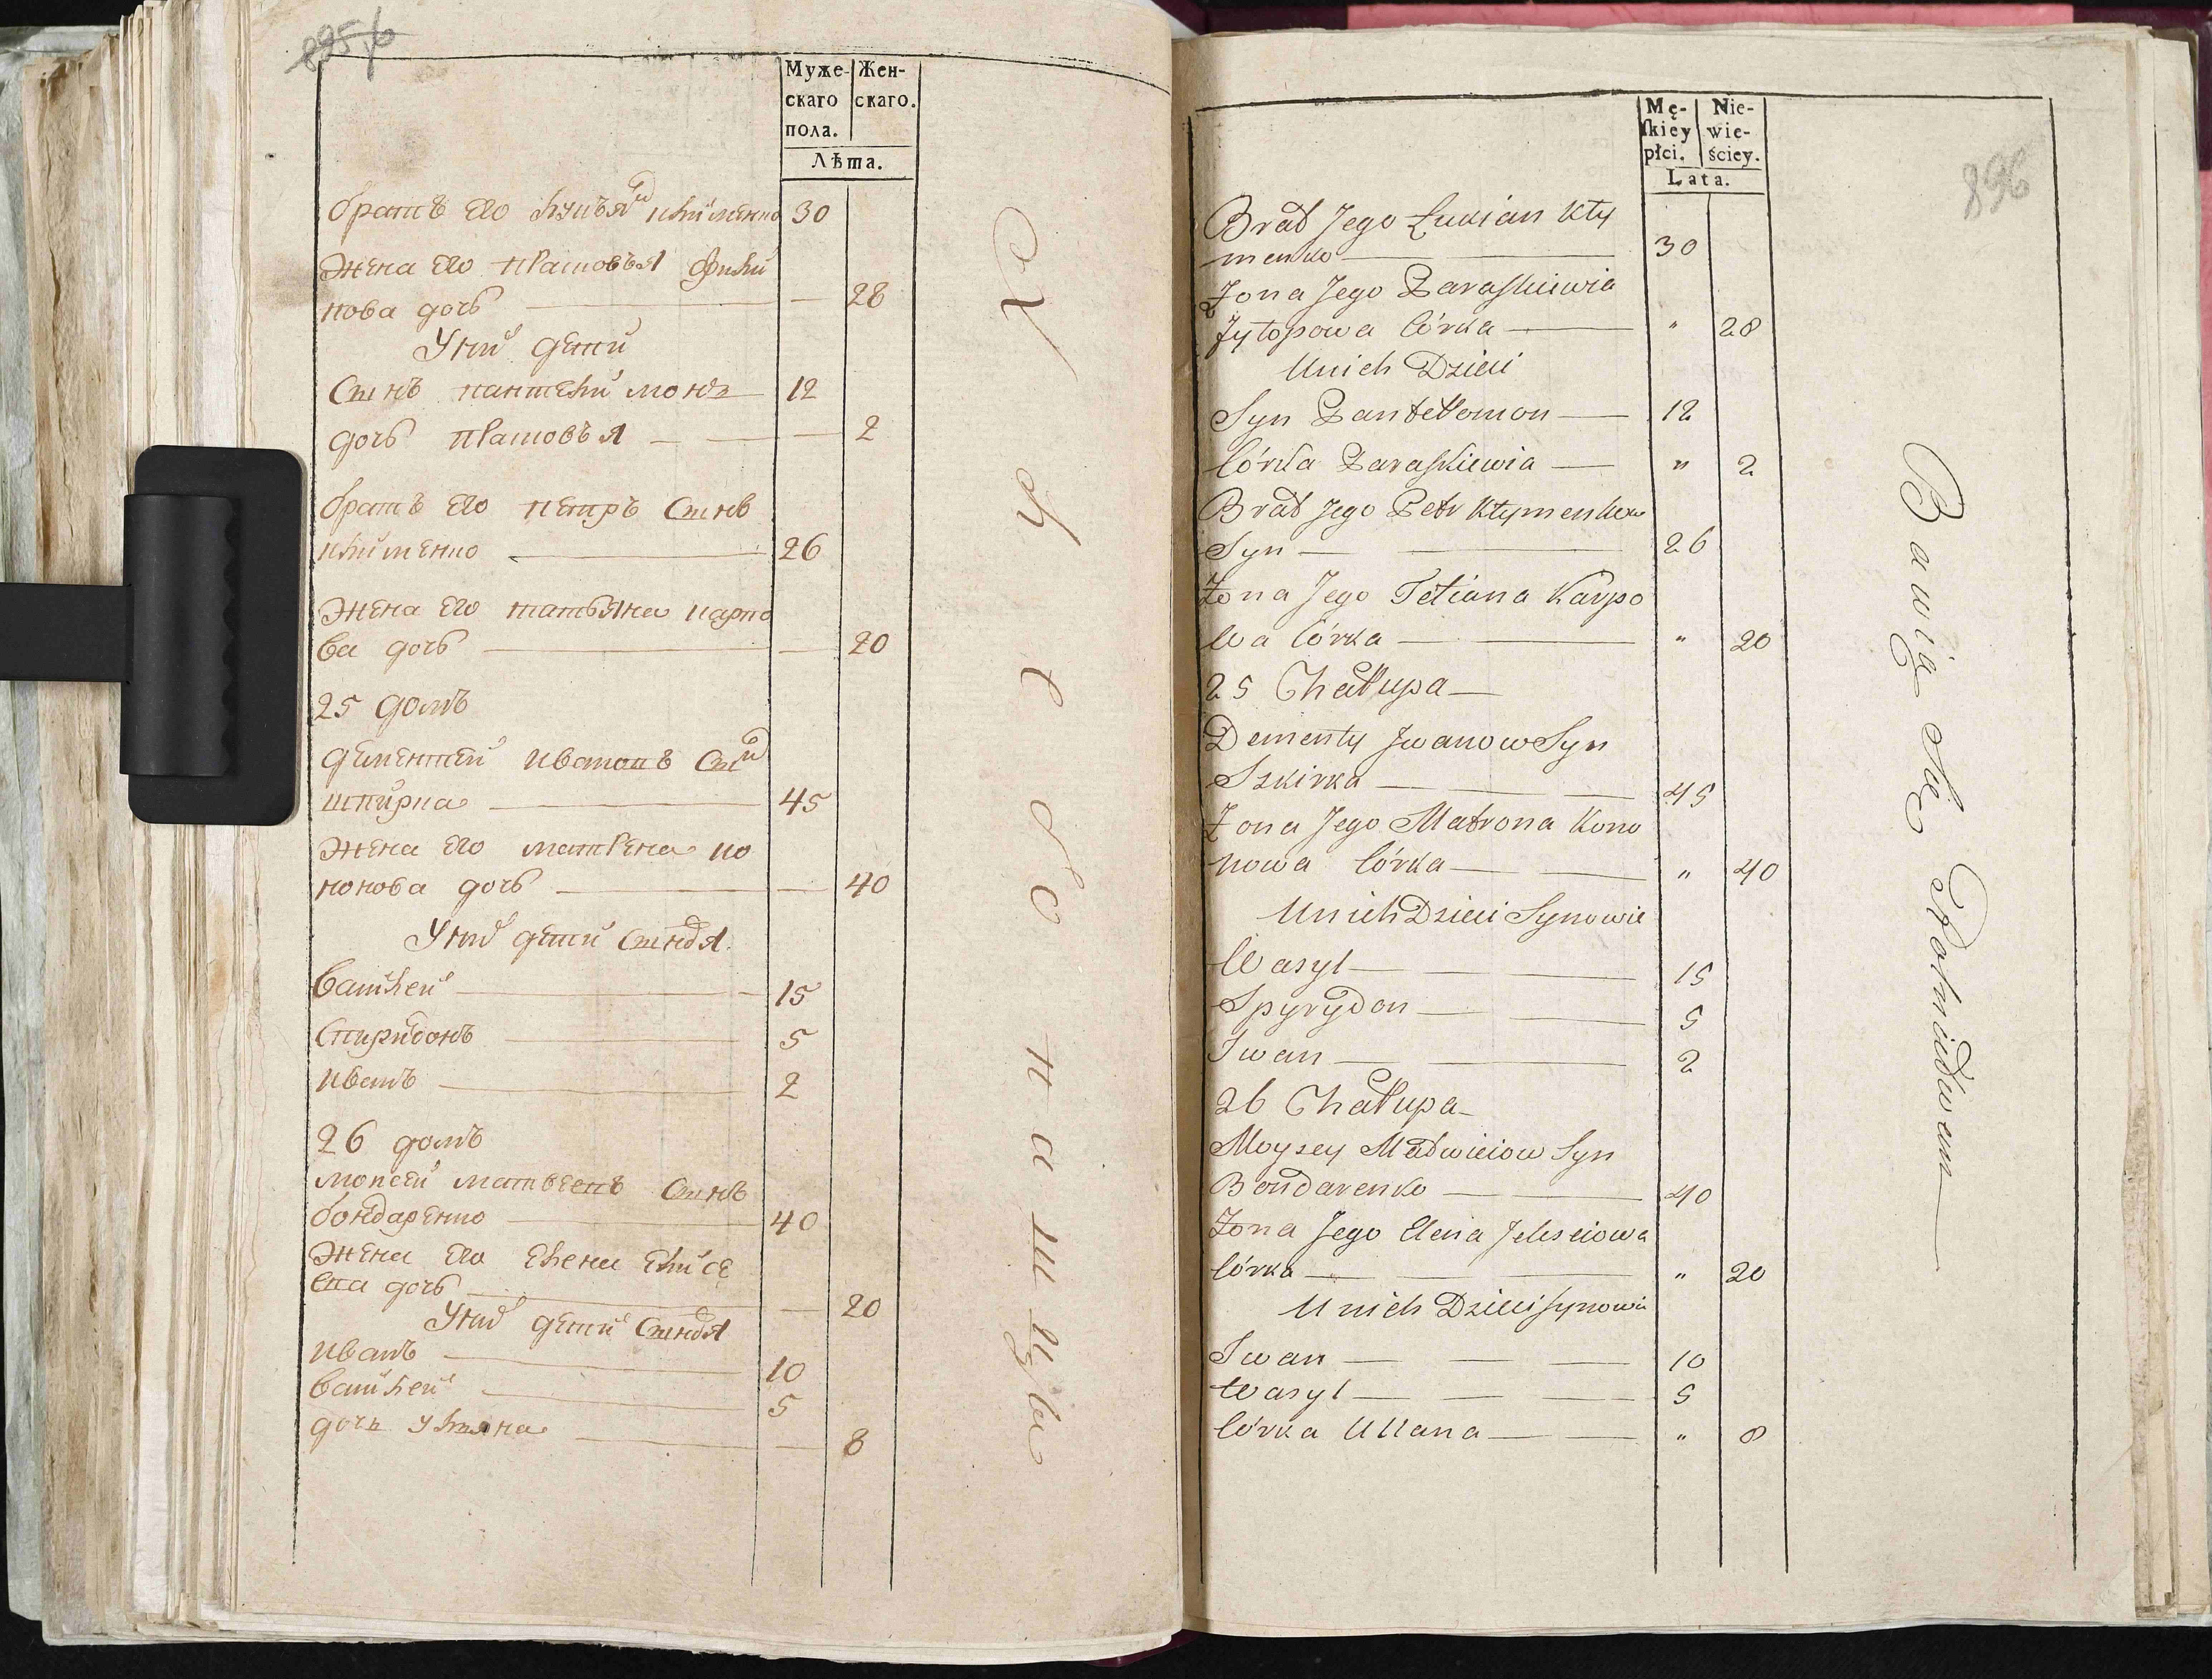 895
Муже-
скаго
пола.
Жен-
скаго.
Лѣта.
братъ его лукъян клименко 30
жена его парасковья
нова дочь — 28
У них дети
Сынъ пантелимонъ 12
дочь парасковья — 2
братъ его петръ Сынъ
клименко 26
жена его татьяна карпо
ва дочь — 20
25 домъ
дементей ивановъ Сын
шкирка 45
жена его матрена ко
нонова дочь — 40
У них дети Сыновья
василей 15
Спиридонъ 5
иванъ 2
26 домъ
моисей матвеевъ Сынъ
бондаренко 40
жена его елена елисе
ева дочь — 20
У них дети Сыновья
иванъ 10
василей 5
дочь ульяна — 8
Хлебопашцы
896
Mę-
skiey
płci.
Nie-
wie-
ściey.
Lata.
Brat Jego Łukian Kły
menko 30
Żona Jego Paraskiewia
Fylopowa Córka — " 28
U nich Dzieci
Syn Pantełomon — 12
Córka Paraskiewia — " 2
Brat Jego Petr Kłymenkow
Syn — 26
Żona Jego Tetiana Karpo
wa Córka — " 20
25 Chałupa —
Dementy Jwanow Syn
Szkirka — 45
Żona Jego Matrona Kono
nowa Córka — " 40
U nich Dzieci Synowie
Wasyl — 15
Spyrydon — 5
Iwan — 2
26 Chałupa —
Moysey Matwieiow Syn
Bondarenko — 40
Żona Jego Elena Jeleseiowa
Córka — " 20
U nich Dzieci Synowie
Iwan — 10
Wasyl — 5
Córka Ullana — " 8
Bawią się Rolnictwem